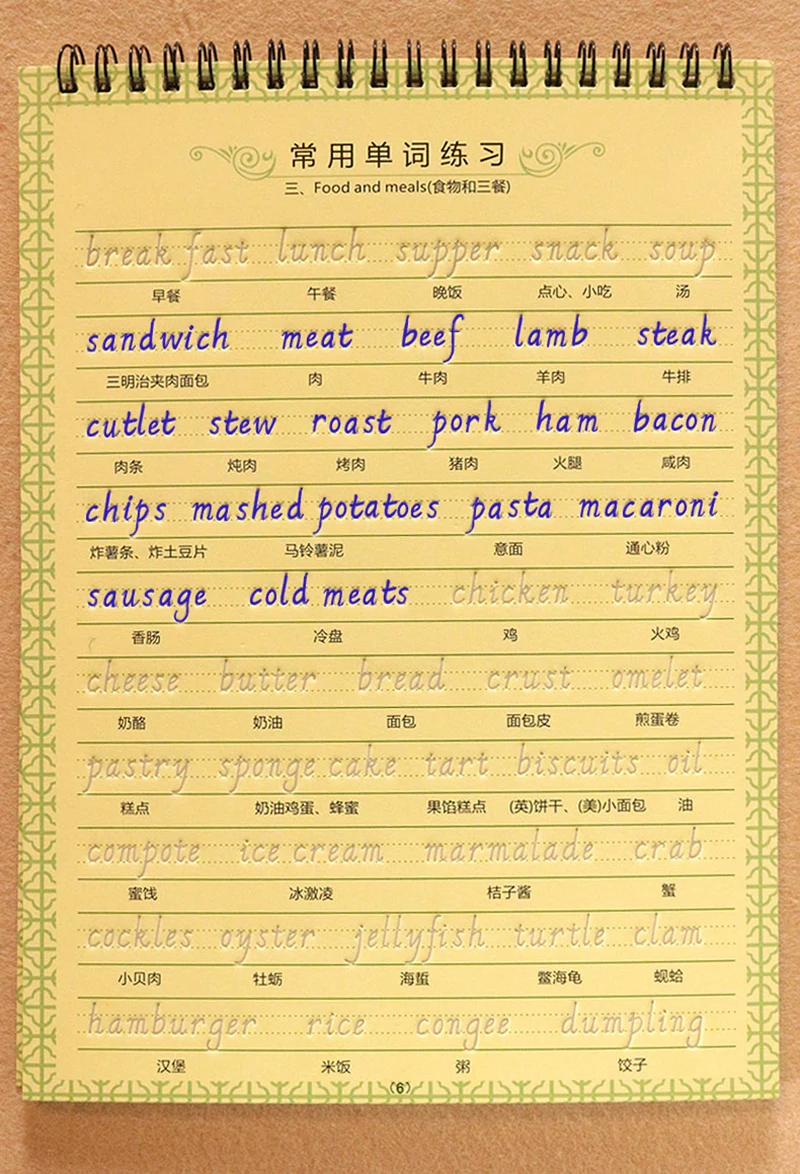 常用单词练习
三、Food and meals(食物和三餐)
breakfast lunch supper snack soup
早餐 午餐 晚饭 点心、小吃 汤
sandwich meat beef lamb steak
三明治夹肉面包 肉 牛肉 羊肉 牛排
cutlet stew roast pork ham bacon
肉条 炖肉 烤肉 猪肉 火腿 咸肉
chips mashed potatoes pasta macaroni
炸薯条、炸土豆片 马铃薯泥 意面 通心粉
sausage cold meats chicken turkey
香肠 冷盘 鸡 火鸡
cheese butter bread crust omelet
奶酪 奶油 面包 面包皮 煎蛋卷
pastry sponge cake tart biscuits oil
糕点 奶油鸡蛋、蜂蜜 果馅糕点 (英)饼干、(美)小面包 油
compote ice cream marmalade crab
蜜饯 冰激凌 桔子酱 蟹
cockles oyster jellyfish turtle clam
小贝肉 牡蛎 海蜇 鳖海龟 蚬蛤
hamburger rice congee dumpling
汉堡 米饭 粥 饺子
(6)